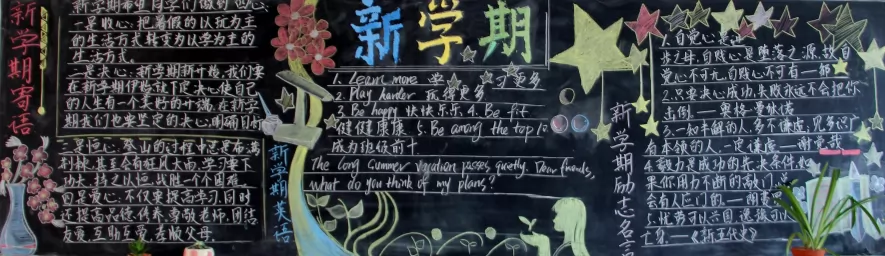 新学期寄语
新学期希望同学们做到四心:
一是收心:把暑假的以玩为主
的生活方式转变为以学为主的
生活方式.
二是决心:新学期新开始,我们要
在新学期伊始就下定决心使自己
的人生有一个美好的开端,在新学
期我们也要坚定的决心,明确目标
三是恒心:登山的过程中总是布满
荆棘,甚至会有狂风大雨,学习要下
功夫,持之以恒,战胜一个个困难.
四是爱心:不仅要提高学习,同时
还提高品德修养,尊敬老师,团结
友爱,互助互爱,孝顺父母.
新学期
新学期英语
1. Learn more 学 更多
2. Play harder 玩得更多
3. Be happy 快快乐乐 4. Be fit
健健康康 5. Be among the top 10
成为班级前十
The long Summer vacation passes quetly. Dear friends,
what do you think of my plans?
新学期励志名言
1. 自觉心是进
步之母,自贱心是堕落之源,故自
觉心不可无,自贱心不可有——邹
2. 只要决心成功,失败永远不会把你
击倒.——奥格·曼狄诺
3. 一知半解的人,多不谦虚;见多识广
有本领的人,一定谦虚——谢觉哉
4. 毅力是成功的先决条件,如
果你用力不断的敲门,
会有人应门的——朗费
5. 忧劳可以兴国,逸豫可以
亡身.——《新五代史》